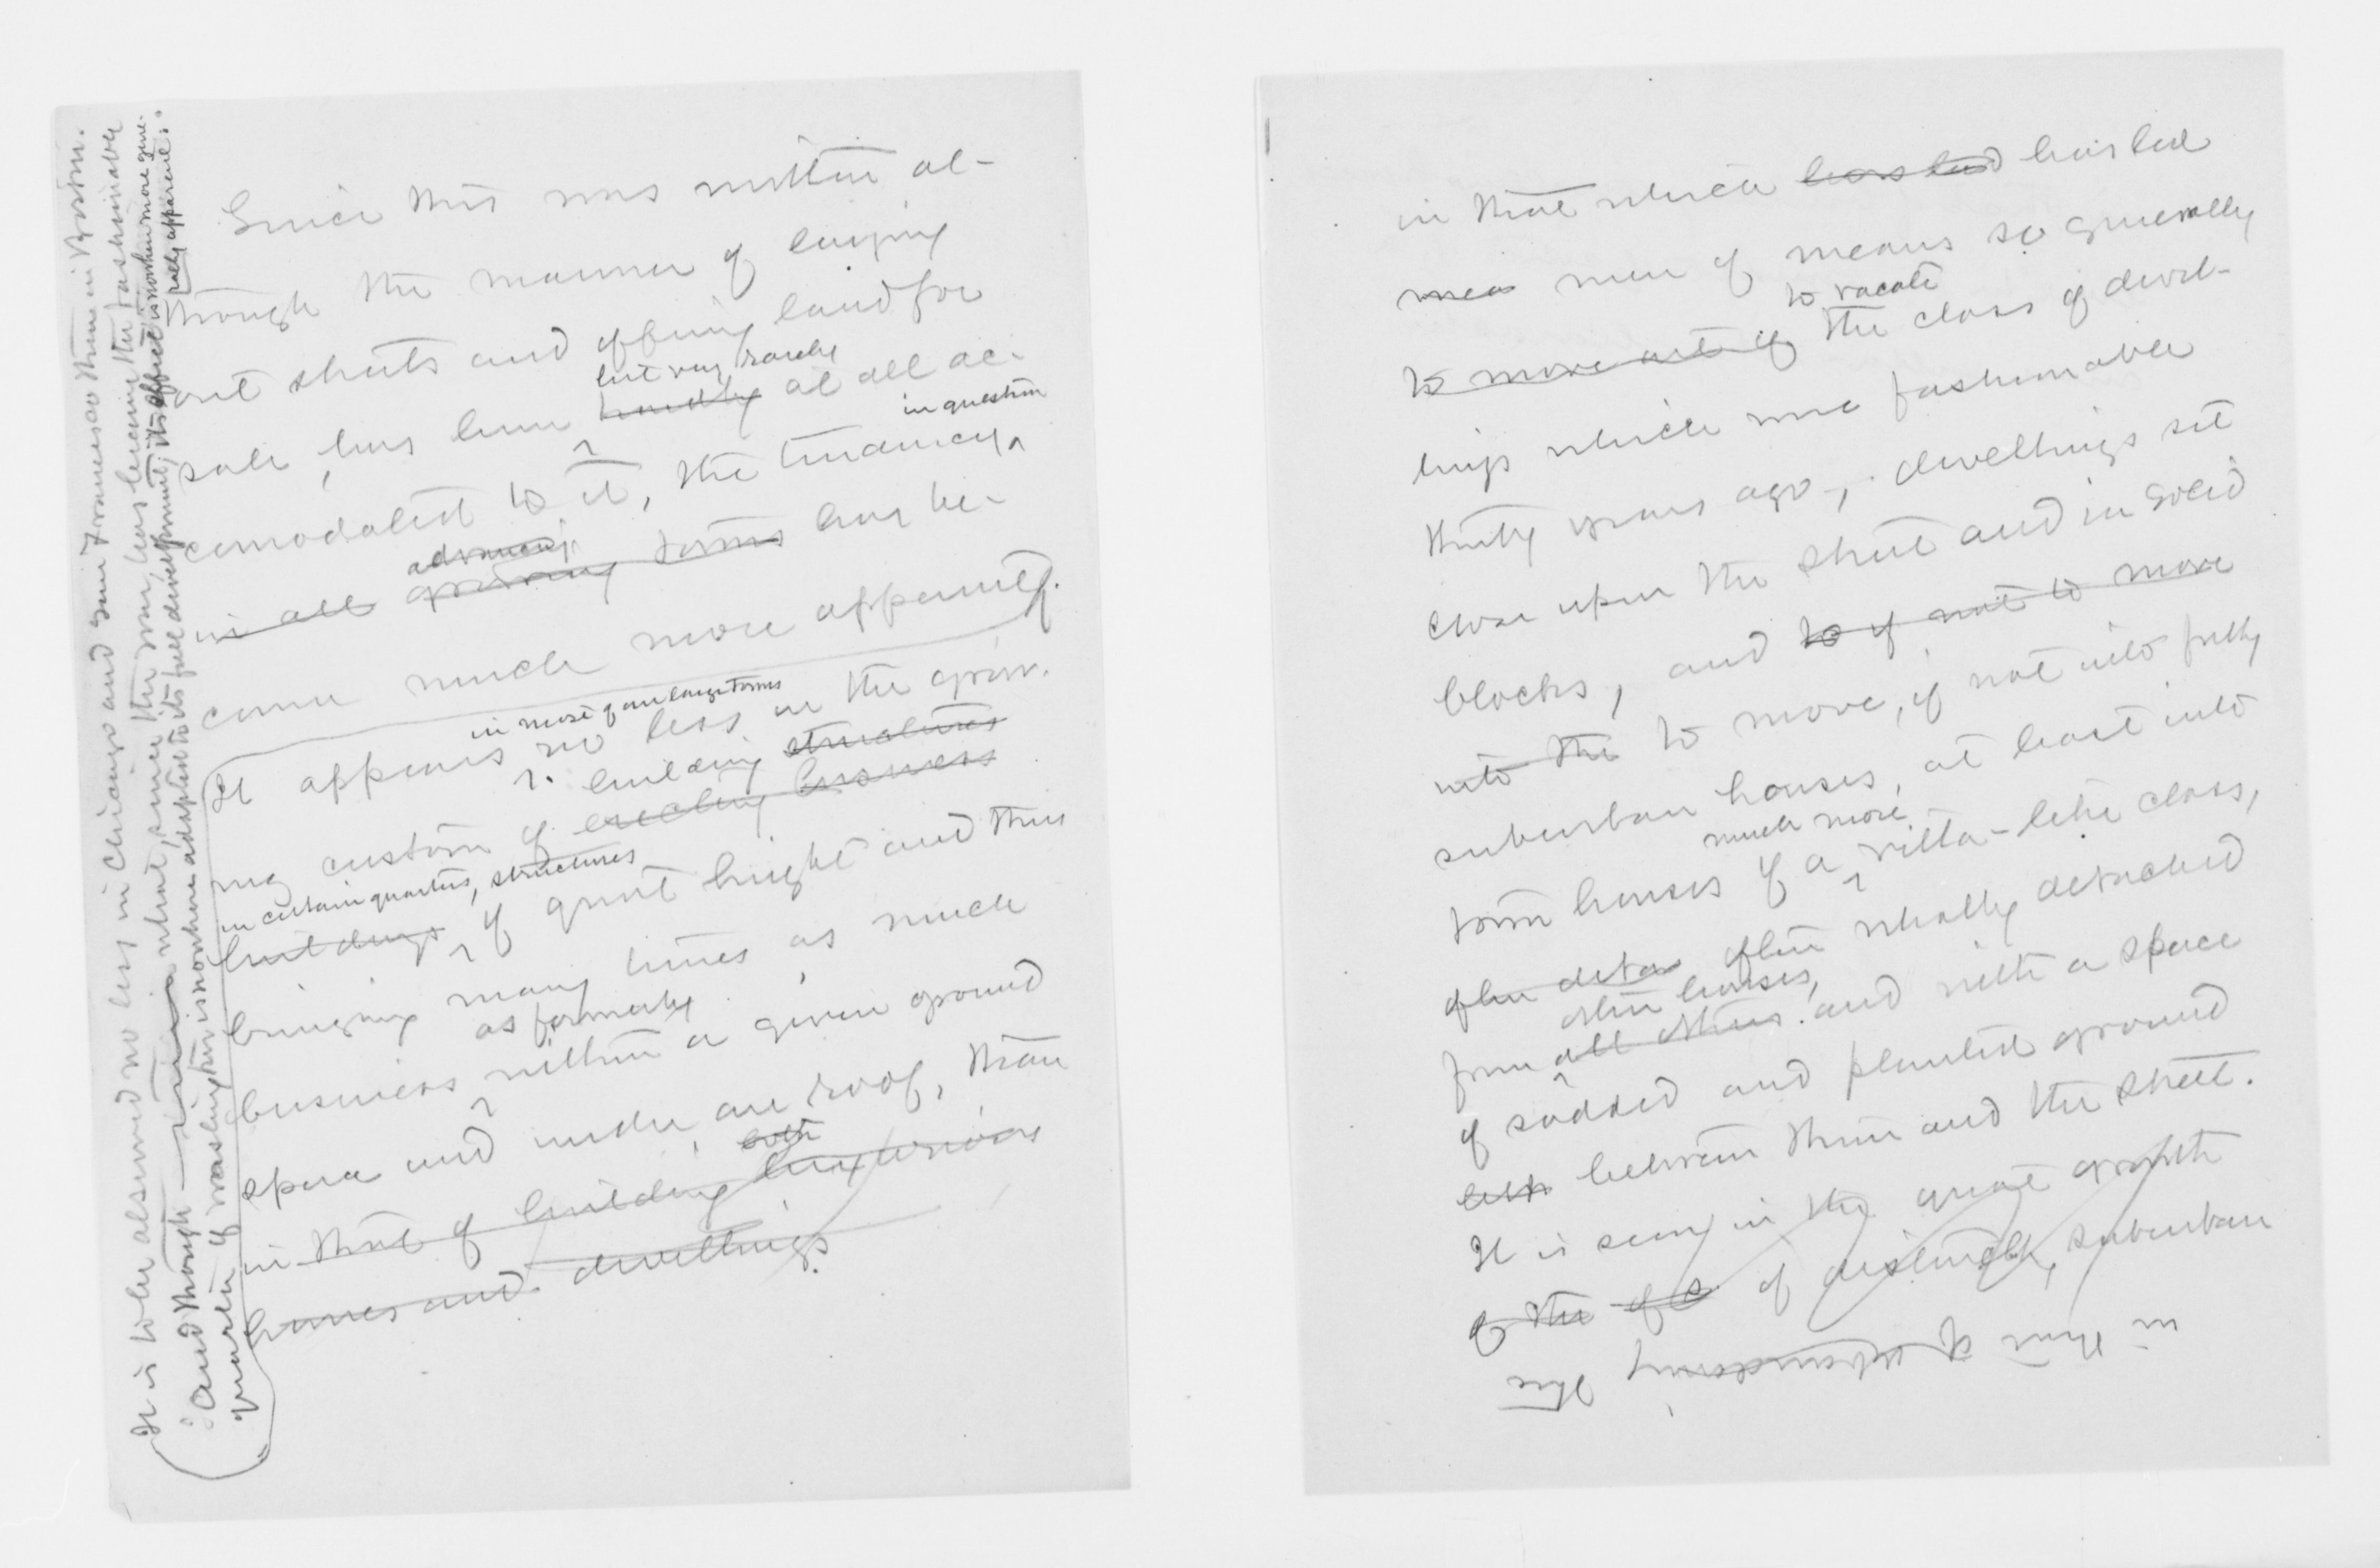 Since this was written al-
though the manner of laying
out streets and offering land for
sale, has been hardly but very rarely at all ac-
comodated to it, the tendency in question
in all growing advancing towns has be-
come much more apparent.
It appears no less in the grow-
in most of our large towns
ing custom of erecting business building structures
in certain quarters, structures
buildings of great height and thus
bringing many times as much
business as formerly within a given ground
space and under one roof, than
in that of building both luxurious
homes and dwellings.
It is to be observed no less in Chicago and San Francisco than in Boston.
And though since what, since the war, has become the fashionable
quarter of Washington is nowhere adapted to its full development, its effect is nowhere more gene-
rally apparent.
in that which has led has led
men men of means so generally
to move out of to vacate the class of dwel-
lings which were fashionable
thirty years ago, dwellings set
close upon the street and in solid
blocks, and to if not to move
into the to move, if not into fully
suburban houses, at least into
town houses of a much more villa-like class,
often detac often wholly detached
from all others other houses, and with a space
of sodded and planted ground
betw between them and the street.
It is seen in the great growth
of the of s of distinctly suburban
in that of